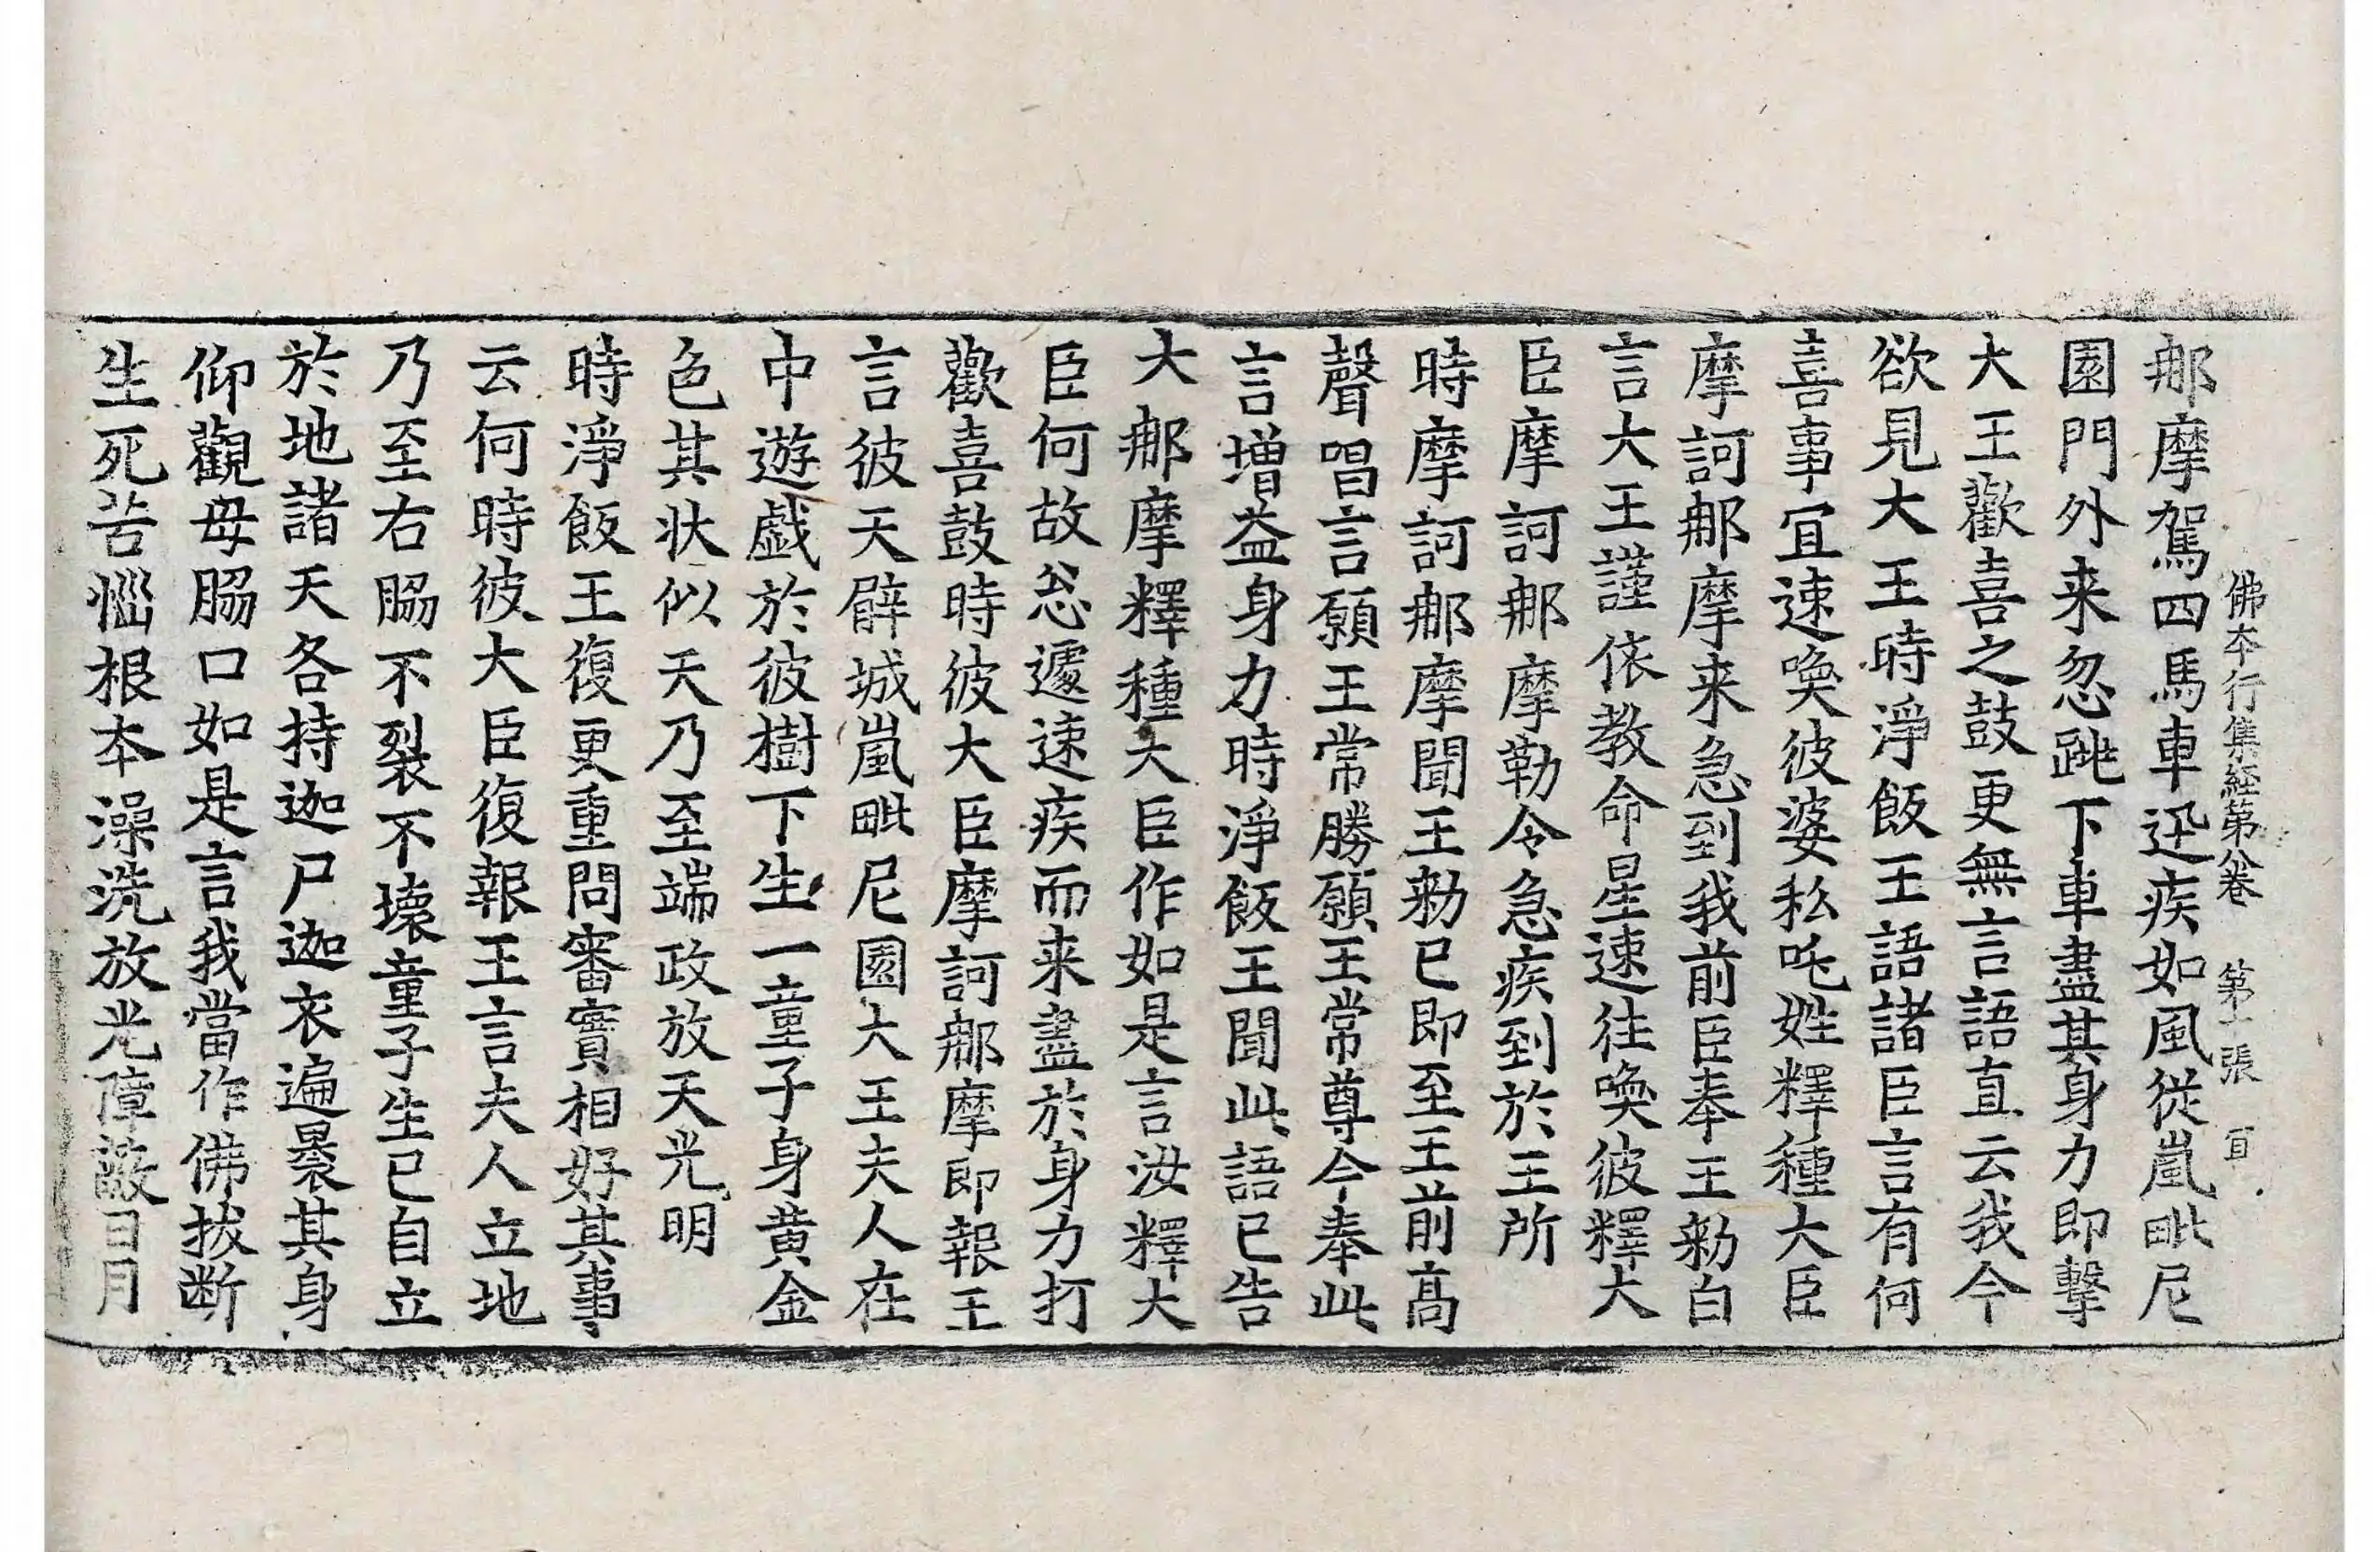 佛本行集経第八巻　第十張　宜
那摩駕四馬車迅疾如風從嵐毗尼
園門外来忽跳下車盡其身力即擊
大王歡喜之鼓更無言語直云我今
欲見大王時淨飯王語諸臣言有何
喜事宜速喚彼婆私吒姓釋種大臣
摩訶那摩来急到我前臣奉王勑白
言大王謹依教命星速往喚彼釋大
臣摩訶那摩勒令急疾到於王所
時摩訶那摩聞王勑已即至王前高
聲唱言願王常勝願王常尊今奉此
言增益身力時淨飯王聞此語已告
大那摩釋種大臣作如是言汝釋大
臣何故忩遽速疾而来盡於身力打
歡喜鼓時彼大臣摩訶那摩即報王
言彼天臂城嵐毗尼園大王夫人在
中遊戲於彼樹下生一童子身黃金
色其状似天乃至端政放天光明
時淨飯王復更重問審實相好其事
云何時彼大臣復報王言夫人立地
乃至右脇不裂不壞童子生已自立
於地諸天各持迦尸迦衣遍裹其身
仰觀母脇口如是言我當作佛拔断
生死苦惱根本澡洗放光障蔽日月